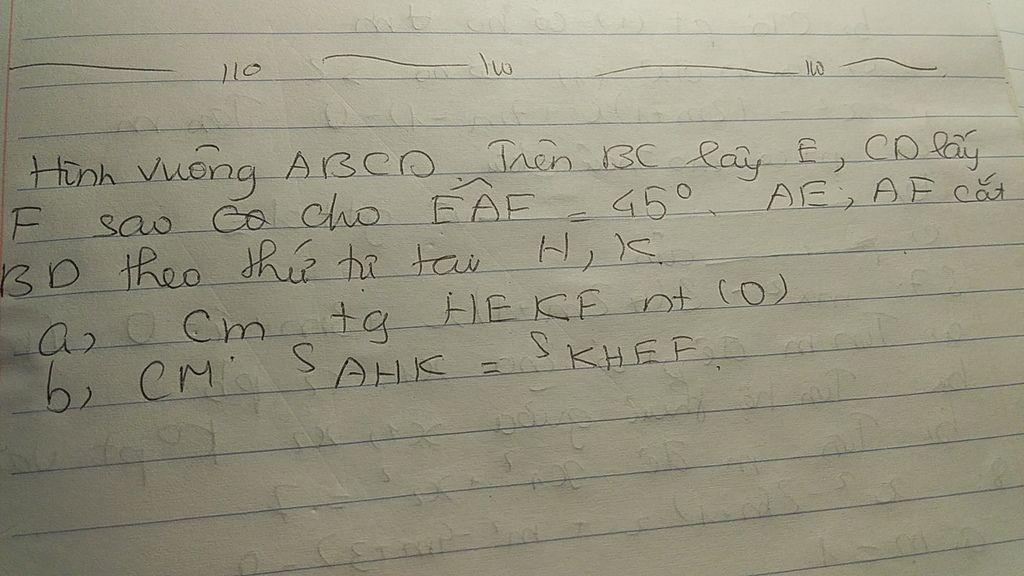 110 110 110
Hình vuông ABCD. Trên BC lấy E, CD lấy
F sao cho EÂF = 45°. AE; AF cắt
BD theo thứ tự tại H, K.
a, Cm tg HEKF nt (O)
b, CM: S AHK = S KHEF.